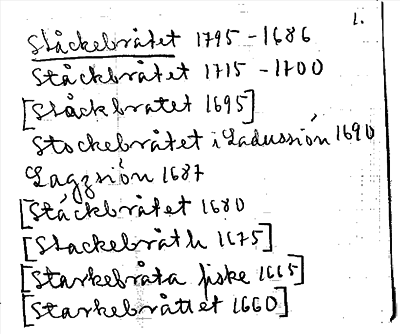 1.
Ståckebråtet 1795-1686
Ståckbråtet 1715-1700
[Ståckbratet 1695]
Stockebråtet i Ladussión 1690
Lagzsión 1687
[Ståckebråtet 1680
[Stackebråth 1675]
[Starkebråta fiske 1665]
[Starkebråttet 1660]